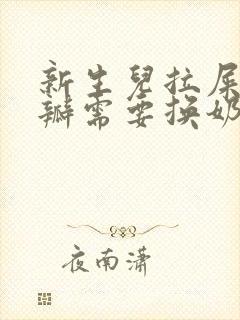 新生儿拉屎
瓣需要换奶
夜南潇